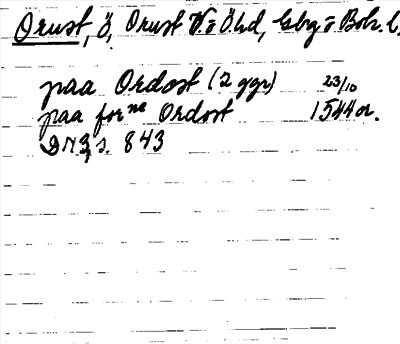 Orust, ö, Orust V. o Ö hd, Gbg o Boh. l.
paa Ordost (2 ggr) 23/10
paa forne Ordost 1544 or.
DN 3, s. 843